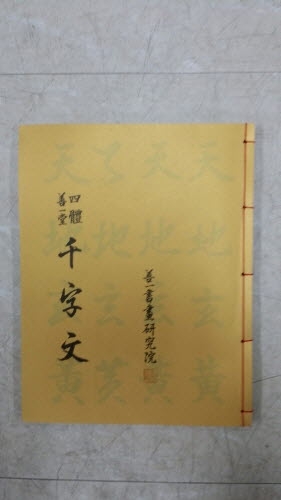 天地玄黃
天地玄黃
天地玄黃
天地玄黃
善一書畫研究院
四體
善一堂
千字文